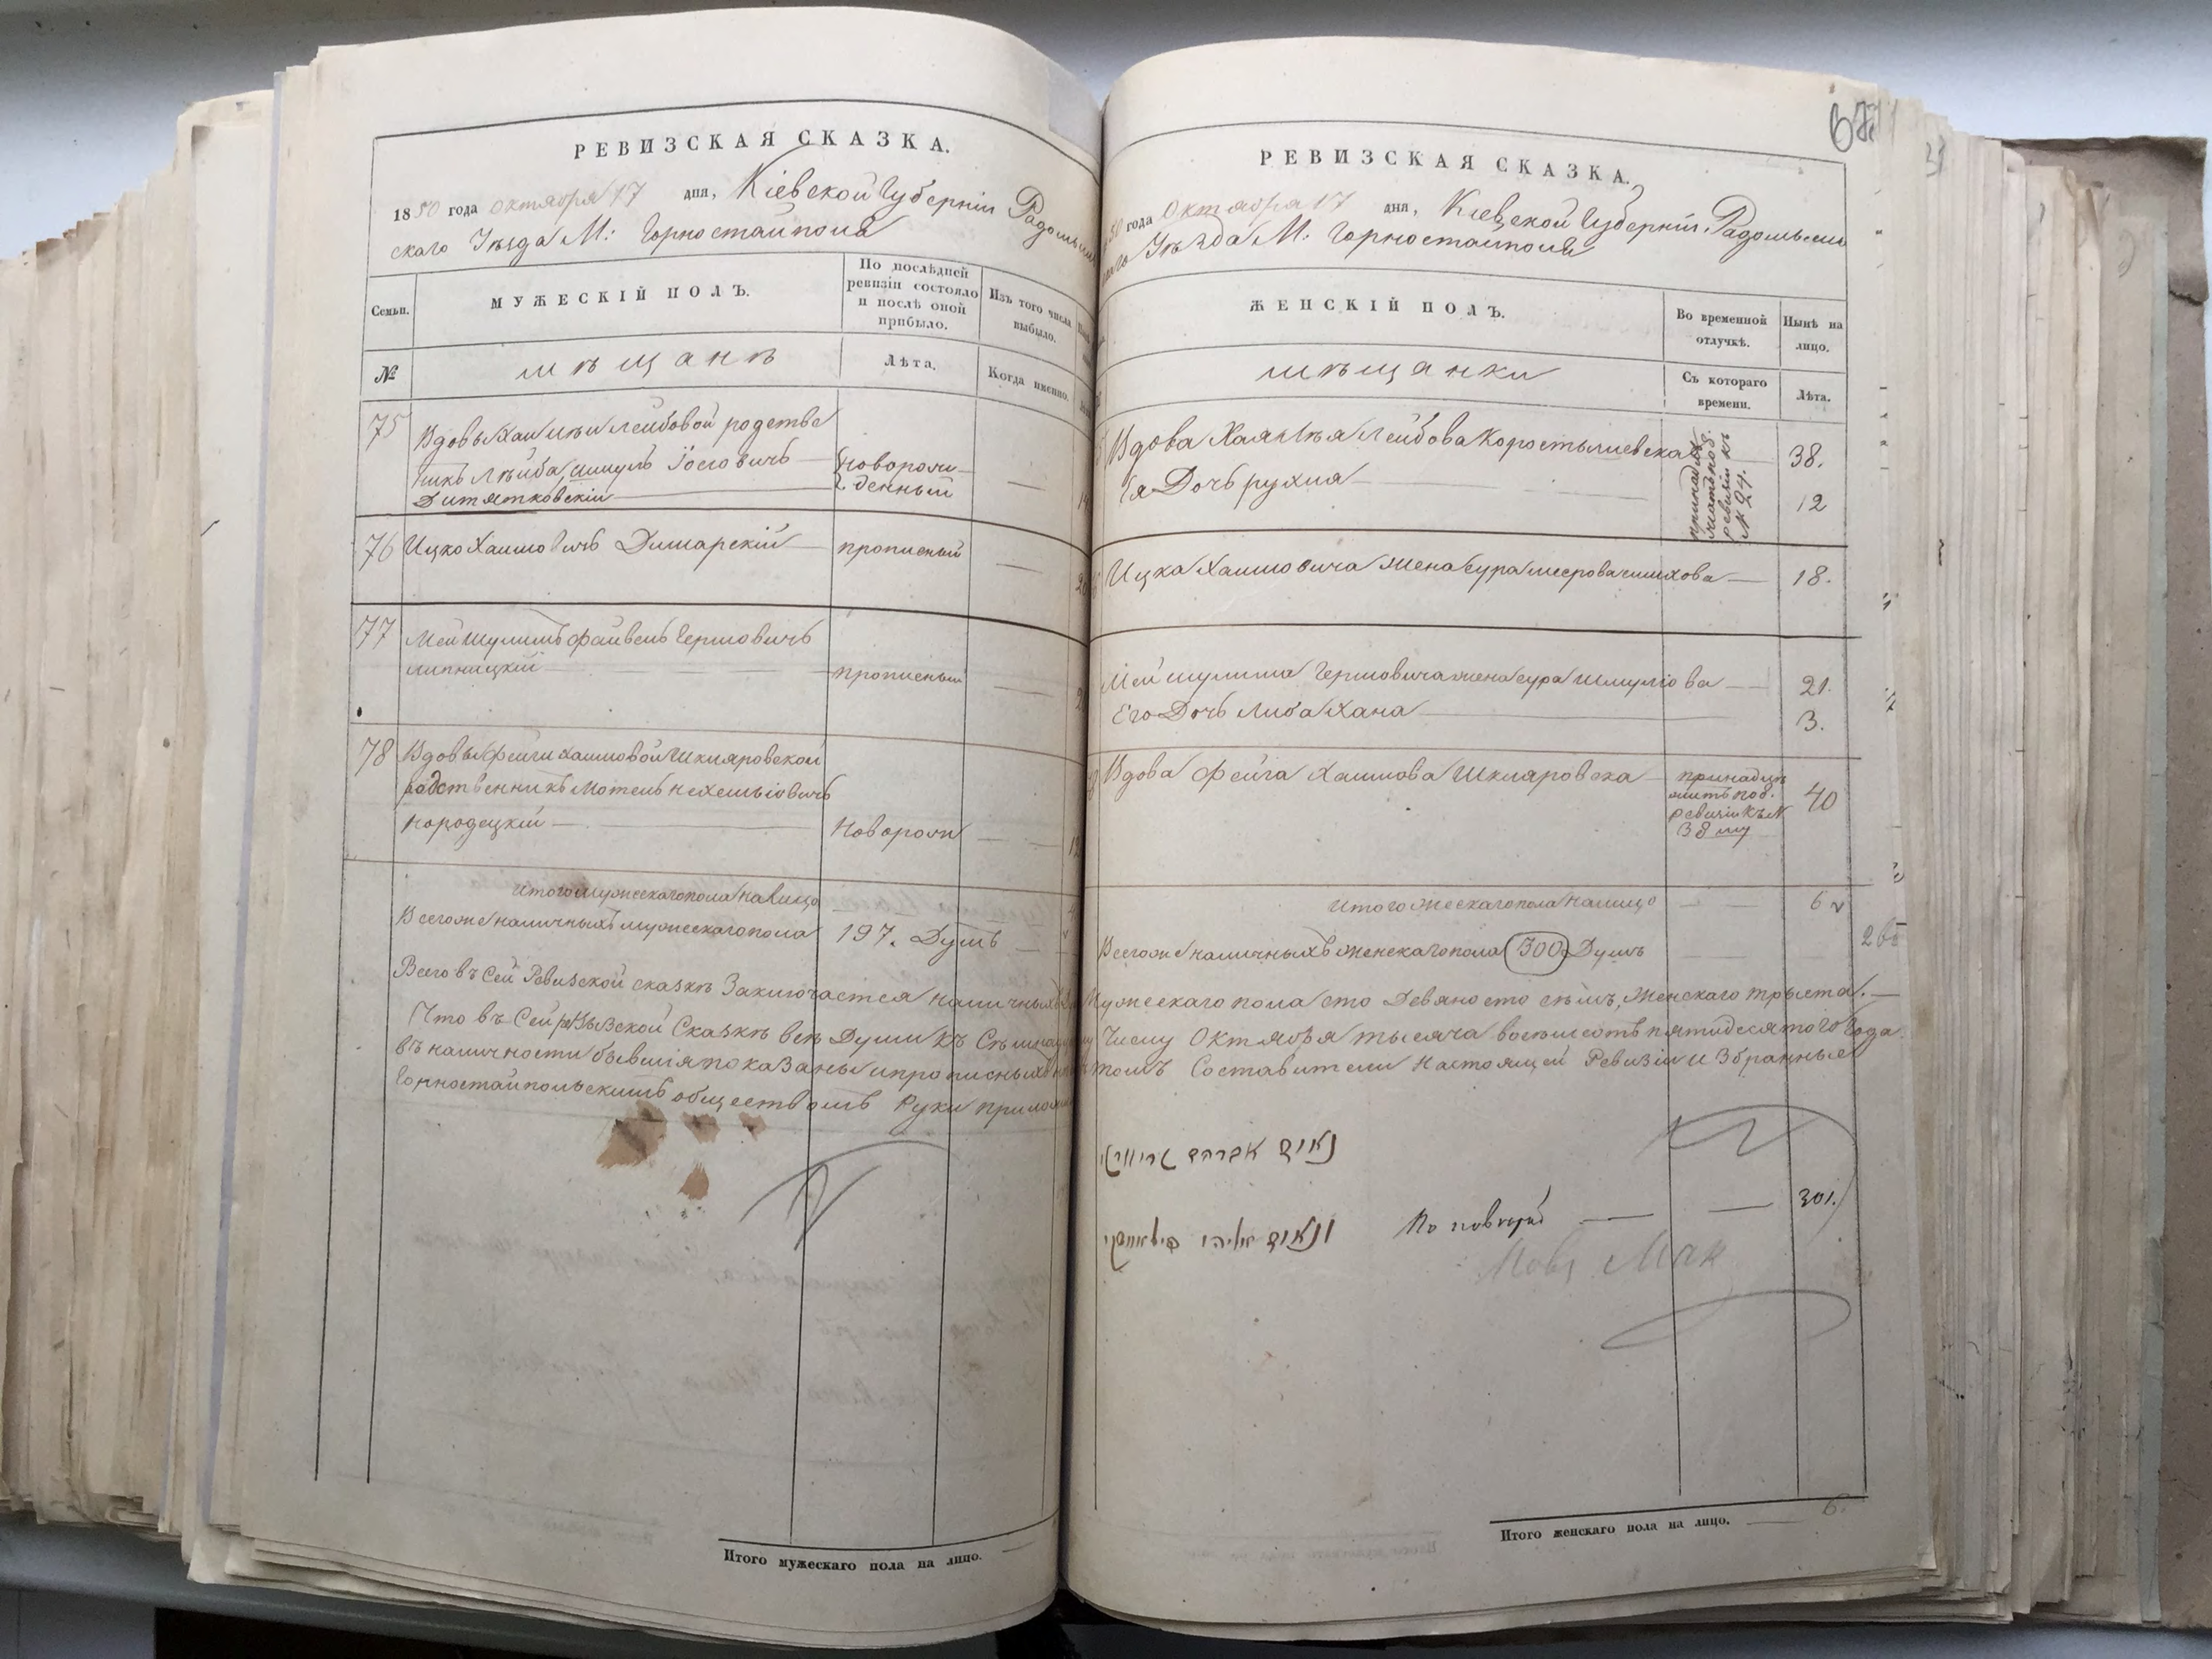 РЕВИЗСКАЯ СКАЗКА.
1850 года Октября 17 дня, Кіевской Губерніи Радомысль
скаго Уѣзда М: Горностайполя
Семьи.
МУЖЕСКІЙ ПОЛЪ.
По послѣдней
ревизіи состояло
и послѣ оной
прибыло.
Изъ того числа
выбыло.
№
мѣщанѣ
Лѣта.
Когда именно.
75
Вдовы Хаи Лѣи Лейбовой родстве
никъ Лѣйба Шмуль Іосіовичъ
Дитятковскій
новорож
денный
76
Ицко Хаимовичъ Димарскій
прописный
77
Мейшулимъ Файвель Гершовичъ
Липницкій
прописный
78
Вдовы Фейги Хаимовой Шкляровской
родственникъ Мотель Нехемьіовичъ
Народецкій
Новорож
Итого мужескаго пола на лицо
Всего же наличныхъ мужескаго пола 197. Душъ
Всего въ сей Ревизской сказкѣ Заключается наличныхъ
Что въ Сей ревизской Сказкѣ всѣ Души къ
въ наличности бывшія показаны и прописныхъ
Горностайпольскимъ обществомъ Руки
Итого мужескаго пола на лицо.
67
РЕВИЗСКАЯ СКАЗКА.
50 года Октября 17 дня, Кіевской Губерніи Радомысль
Уѣзда М: Горностайполя
ЖЕНСКІЙ ПОЛЪ.
Во временной
отлучкѣ.
Нынѣ на
лицо.
мѣщанки
Съ котораго
времени.
Лѣта.
Вдова Хая Лѣя Лейбова Коростышевская
38.
Ея Дочь Рухля
12
принадле
житъ по 8.
ревизіи къ
№ 24.
Ицка Хаимовича жена Сура Меерова
18.
Мейшулима Гершовича жена Сура Шмуліова
21.
Его Дочь Либа Хана
3.
Вдова Фейга Хаимова Шкляровска
принадле
житъ по 8.
ревизіи къ №
38 му
40
Итого женскаго пола на лицо
6
Всего же наличныхъ женскаго пола 300 Душъ
Мужескаго пола сто Девяносто сѣмъ, Женскаго триста.
Числу Октября тысяча восемьсотъ пятидесятого Года
томъ Составители Настоящей Ревизіи Избранные
נאום אברהם
ונאום אליהו
По повѣркѣ
301.
6.
Итого женскаго пола на лицо.